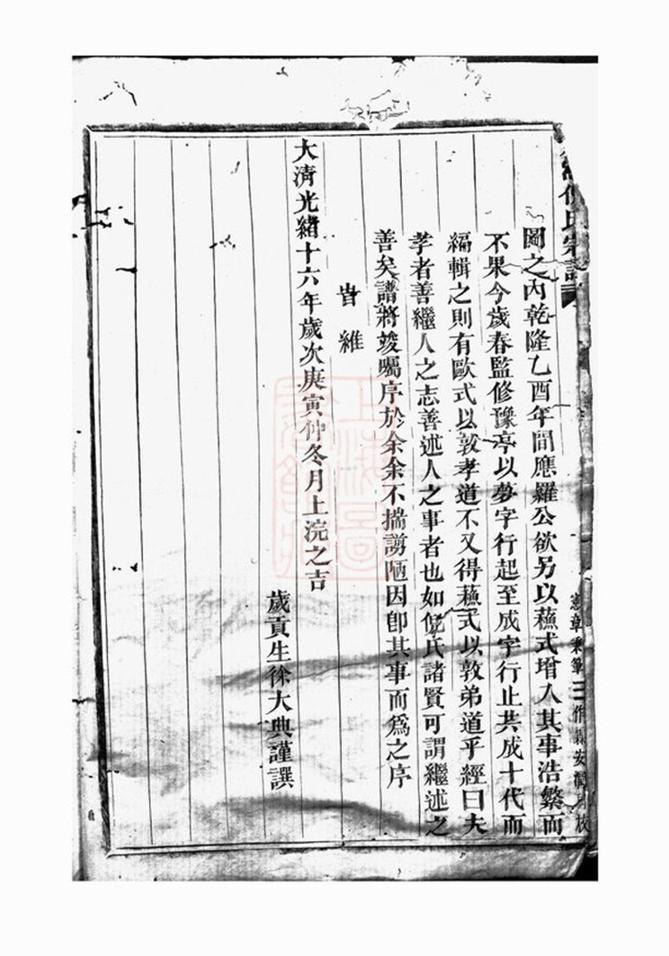 倪氏宗譜
圖之內乾隆乙酉年間應羅公欲另以蘓式增入其事浩繁而
不果今歲春監修豫亭以夢字行起至成字行止共成十代而
編輯之則有歐式以敦孝道不又得蘓式以敦弟道乎經曰夫
孝者善繼人之志善述人之事者也如倪氏諸賢可謂繼述之
善矣譜將竣囑序於余余不揣謭陋因卽其事而爲之序
旹維
大淸光緒十六年歲次庚寅仲冬月上浣之吉
歲貢生徐大典謹譔
上海圖書館藏